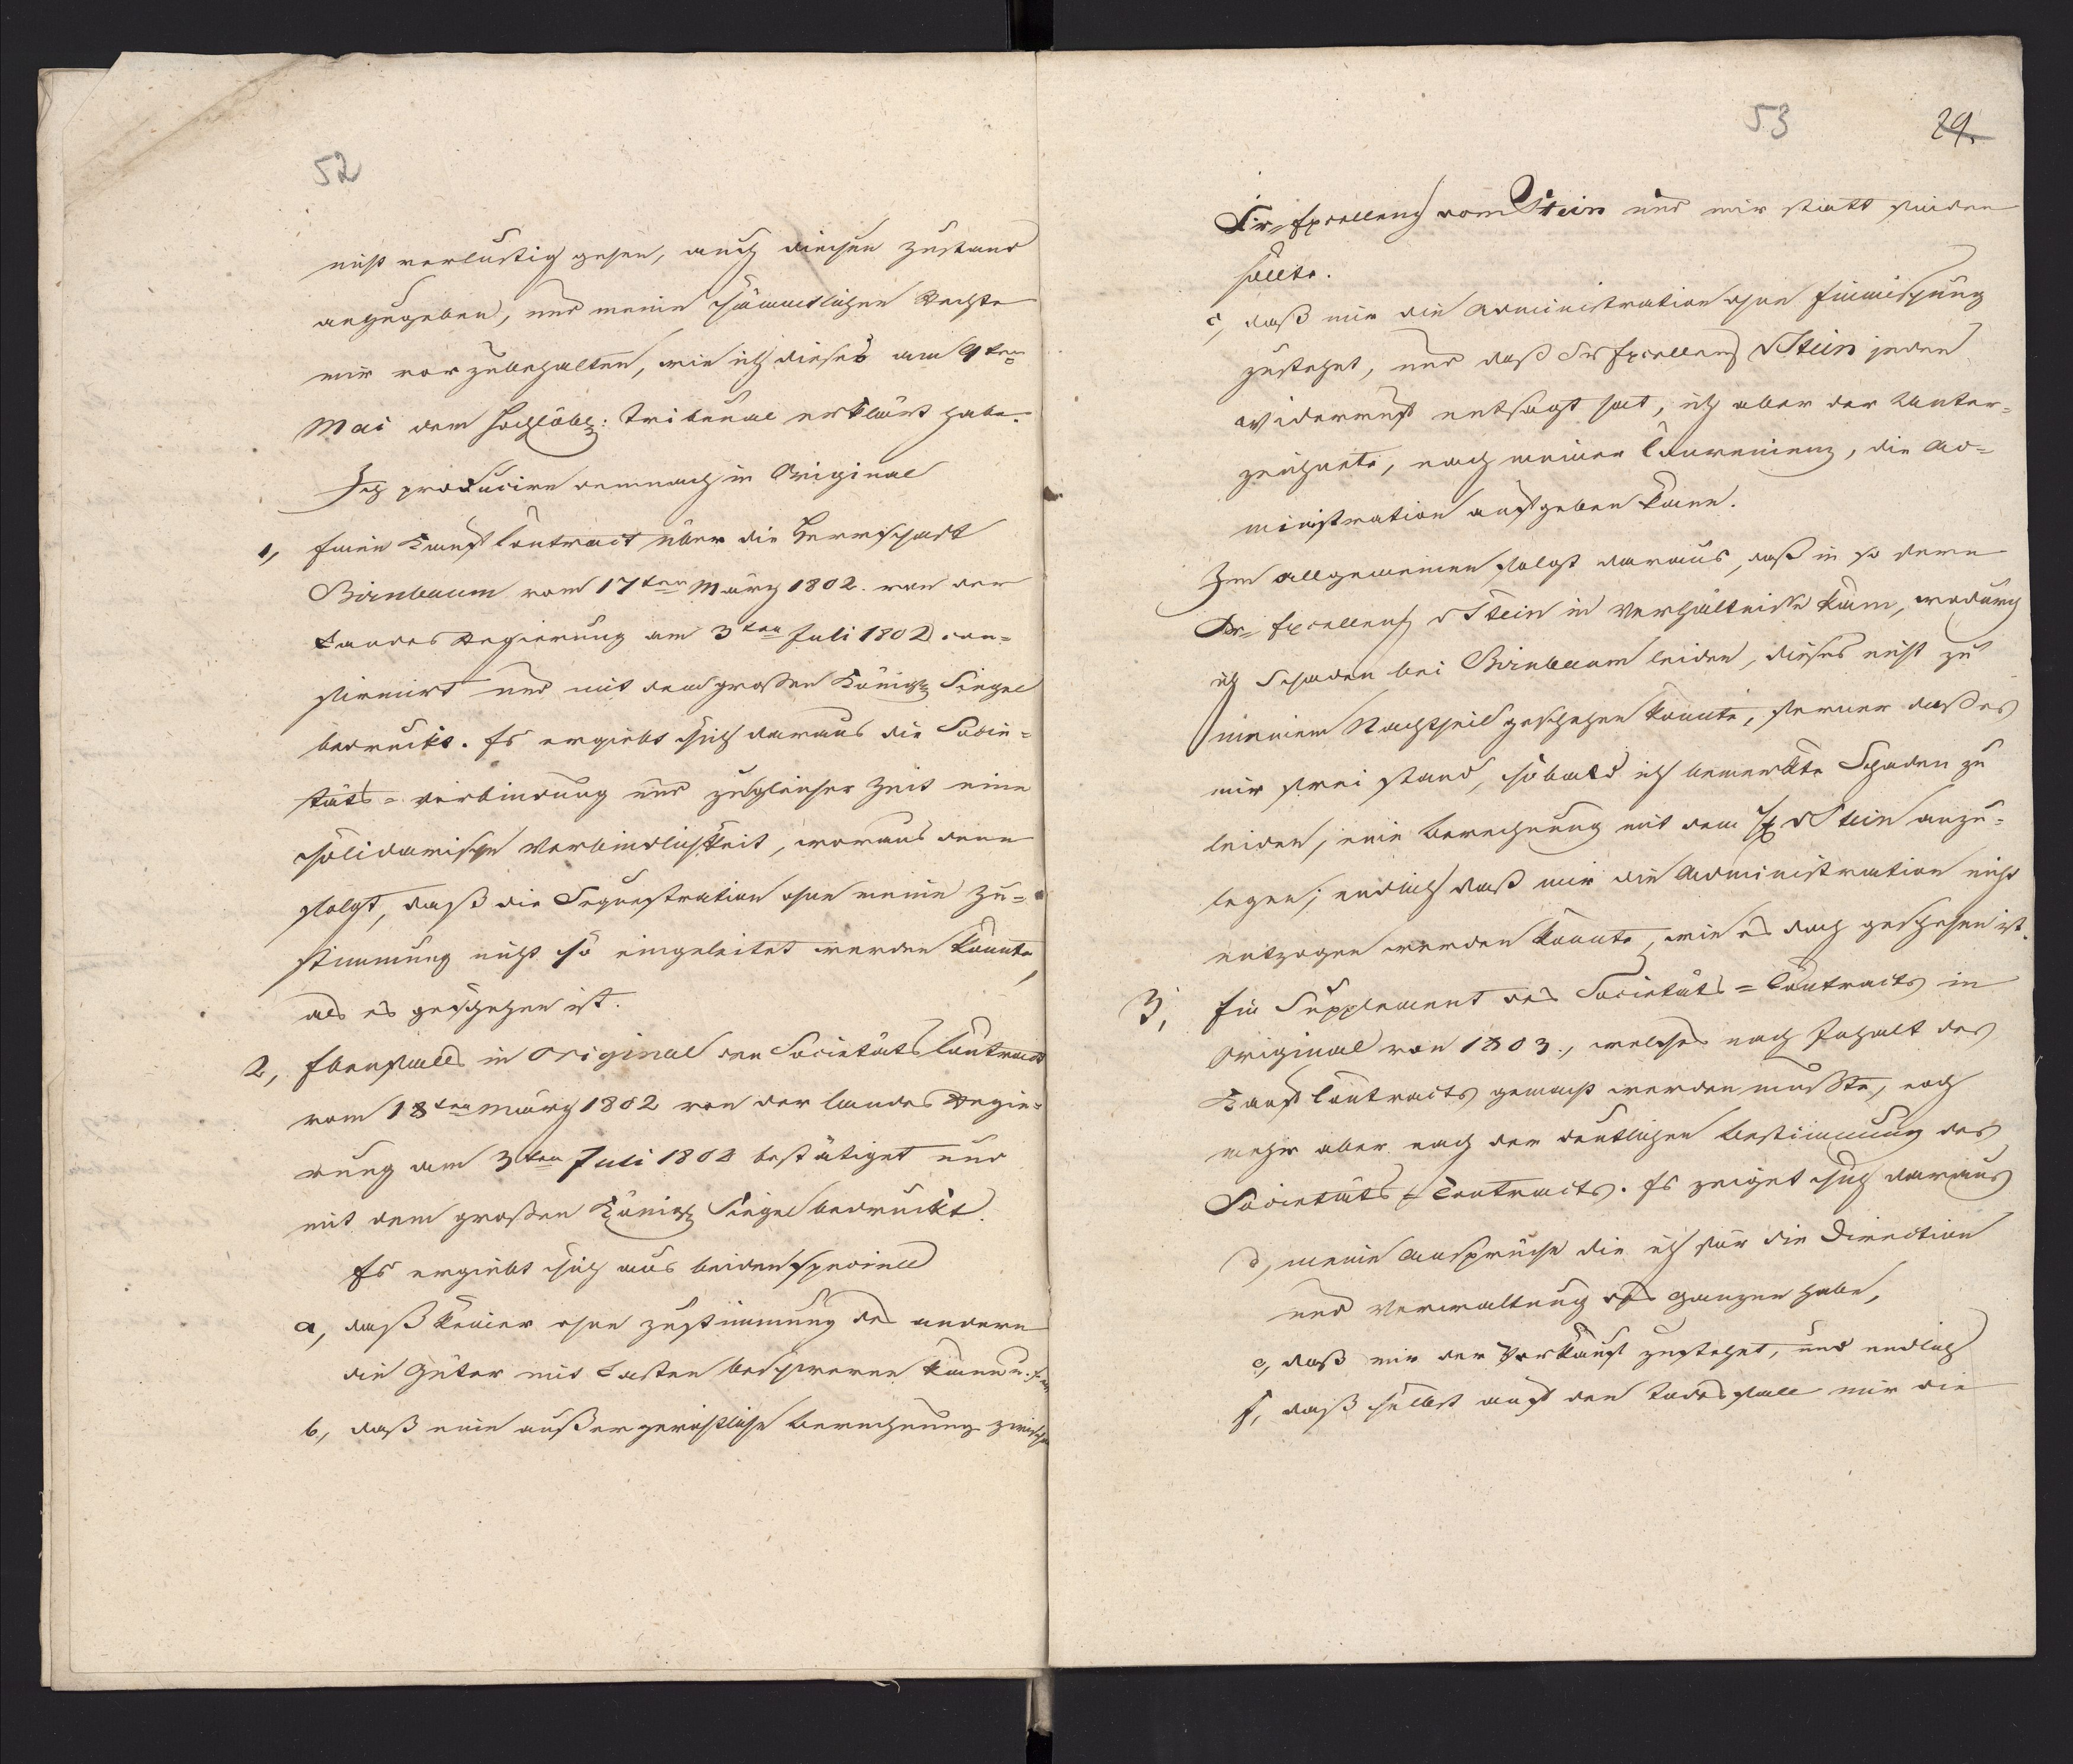 52
nicht verlustig gehen, auch diesen Zustand
anzugeben, und meine sämmtlichen Rechte
mir vorzubehalten, wie ich dieses am 9ten
Mai dem Hochlöbl: Tribunal erklärt habe.
Ich producire demnach in Original
1, Einen Kauf Contract über die Herrschaft
Birnbaum vom 17ten März 1802. von der
Landes Regierung am 3ten Juli 1802 con-
firmirt und mit dem großen Königl Siegel
bedruckt. Es ergiebt sich daraus die Socie-
täts-verbindung und zugleicher Zeit eine
solidarische Verbindlichkeit, woraus denn
folgt, daß die Sequestration ohne meine Zu-
stimmung nicht so eingeleitet werden konnte,
als es geschehen ist.
2, Ebenfalls in Original den Societäts Contract
vom 18ten März 1802 von der Landes Regie-
rung am 3ten Juli 1802 bestätiget und
mit dem großen Königl Siegel bedruckt.
Es ergiebt sich aus beiden speciell
a, daß keiner ohne Zustimmung des andern
die Güter mit Lasten beschweren kann
b, daß eine außergerichtliche Berechnung zwischen
53
29.
Sr Excellenz vom Stein und mir statt finden
sollte.
c, daß mir die Administration ohne Einmischung
zustehet, und daß Sr Excellenz v Stein jeden
Widerruf entsagt hat, ich aber der Unter-
zeichnete, nach meiner Convenienz, die Ad-
ministration aufgeben kann.
Im allgemeinen folgt daraus, daß in so ferne
Sr Excellenz v Stein in Verhältnisse kam, wodurch
ich Schaden bei Birnbaum leiden, dieses nicht zu
meinem Nachtheil geschehen konnte, ferner daß es
mir frei stand, sobald ich bemerkte Schaden zu
leiden, eine Berechnung mit dem H v Stein anzu-
legen; endlich daß mir die Administration nicht
entzogen werden konnte, wie es doch geschehen ist.
3, Ein Supplement des Societäts-Contracts in
Original von 1803., welches nach Inhalt des
Kauf Contracts gemacht werden mußte, noch
mehr aber nach der deutlichen Bestimmung des
Societäts-Contracts. Es zeiget sich daraus
d, meine Ansprüche die ich für die Direction
und Verwaltung des Ganzen habe,
e, daß mir der Vorkauf zustehet, und endlich
f, daß selbst auf den Todesfall mir die